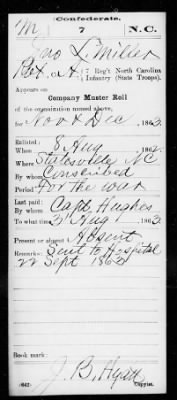 Confederate.
M 7 N.C.
Jno L. Miller
Pvt, Co. A, 7 Reg't North Carolina
Infantry (State Troops).
Appears on
Company Muster Roll
of the organization named above,
for Nov & Dec, 1863.
Enlisted:
When 8 Aug, 1862.
Where Statesville NC
By whom Conscribed
Period for the war
Last paid:
By whom Capt Hughes
To what time 31 Aug, 1863.
Present or absent Absent
Remarks: Sent to Hospital
22 Sept 1863
Book mark:
J. B. Hyatt
(642) Copyist.